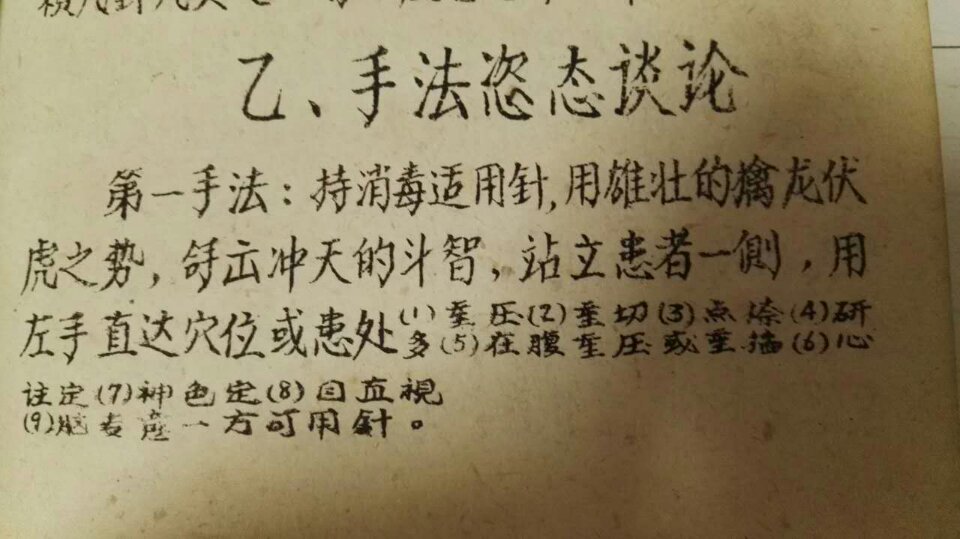 乙、手法恣态谈论
第一手法：持消毒适用针,用雄壮的擒龙伏
虎之势， 冲天的斗智，站立患者一侧，用
左手直达穴位或患处(1)重压(2)重切(3)点 (4)研
(5)在腹重压或重 (6)心
注定(7)神色定(8)目直視
(9)脑专意一方可用針。